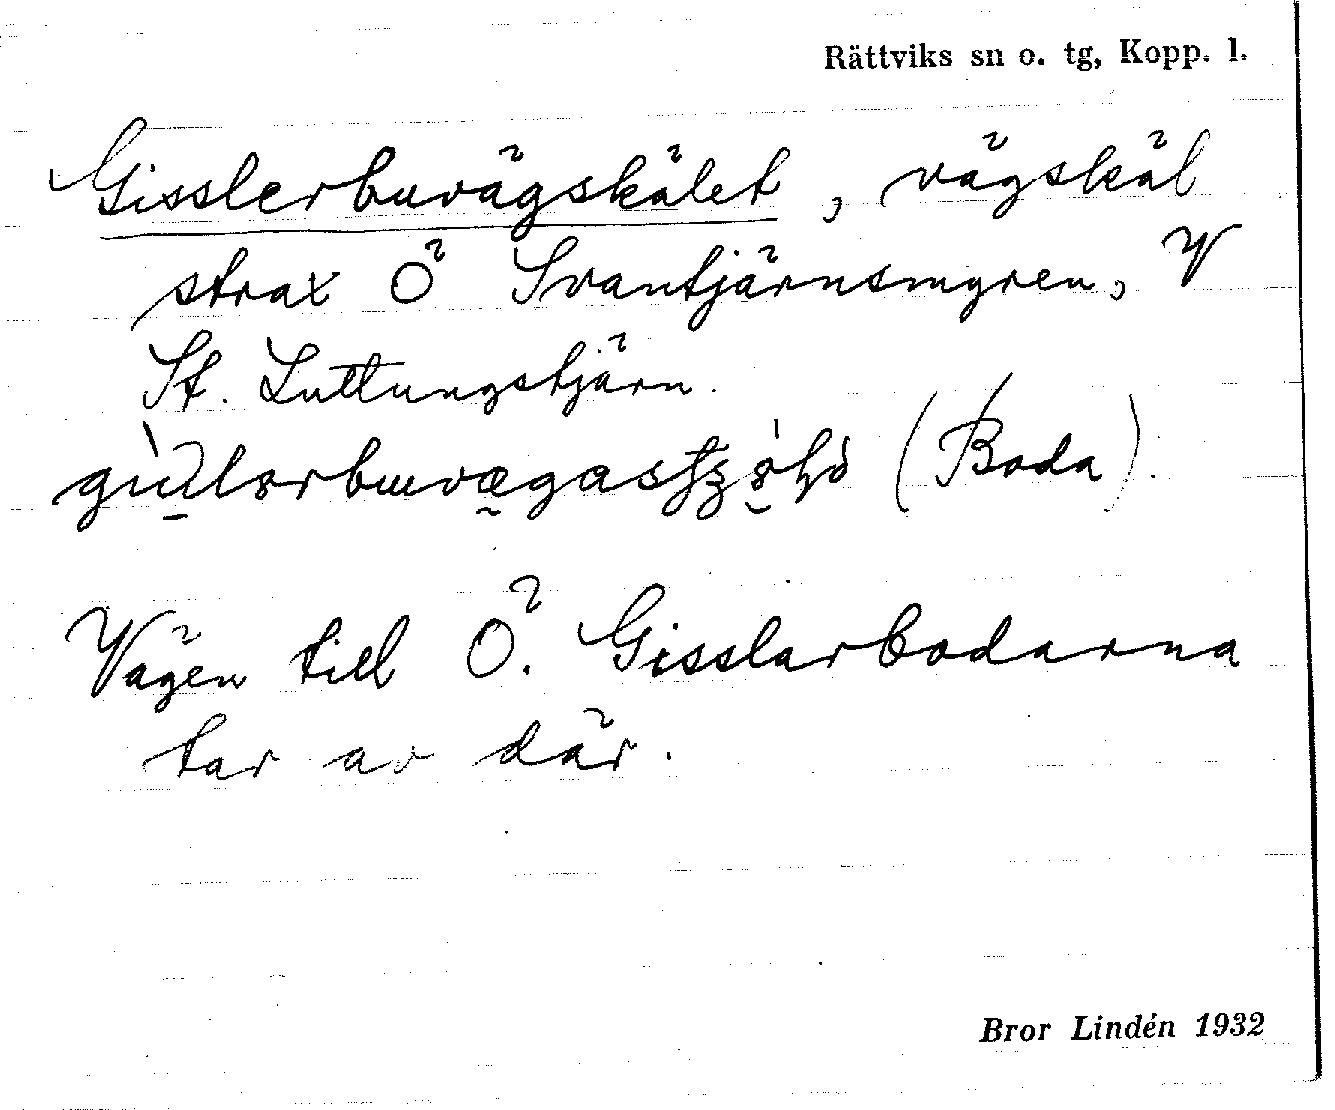 Rättviks sn o. tg, Kopp. l.
Gisslerbuvägskälet, vägskäl
strax Ö Svantjärnsmyren, V
St. Luttungstjärn.
(Boda).
Vägen till Ö. Gisslarbodarna
tar av där.
Bror Lindén 1932